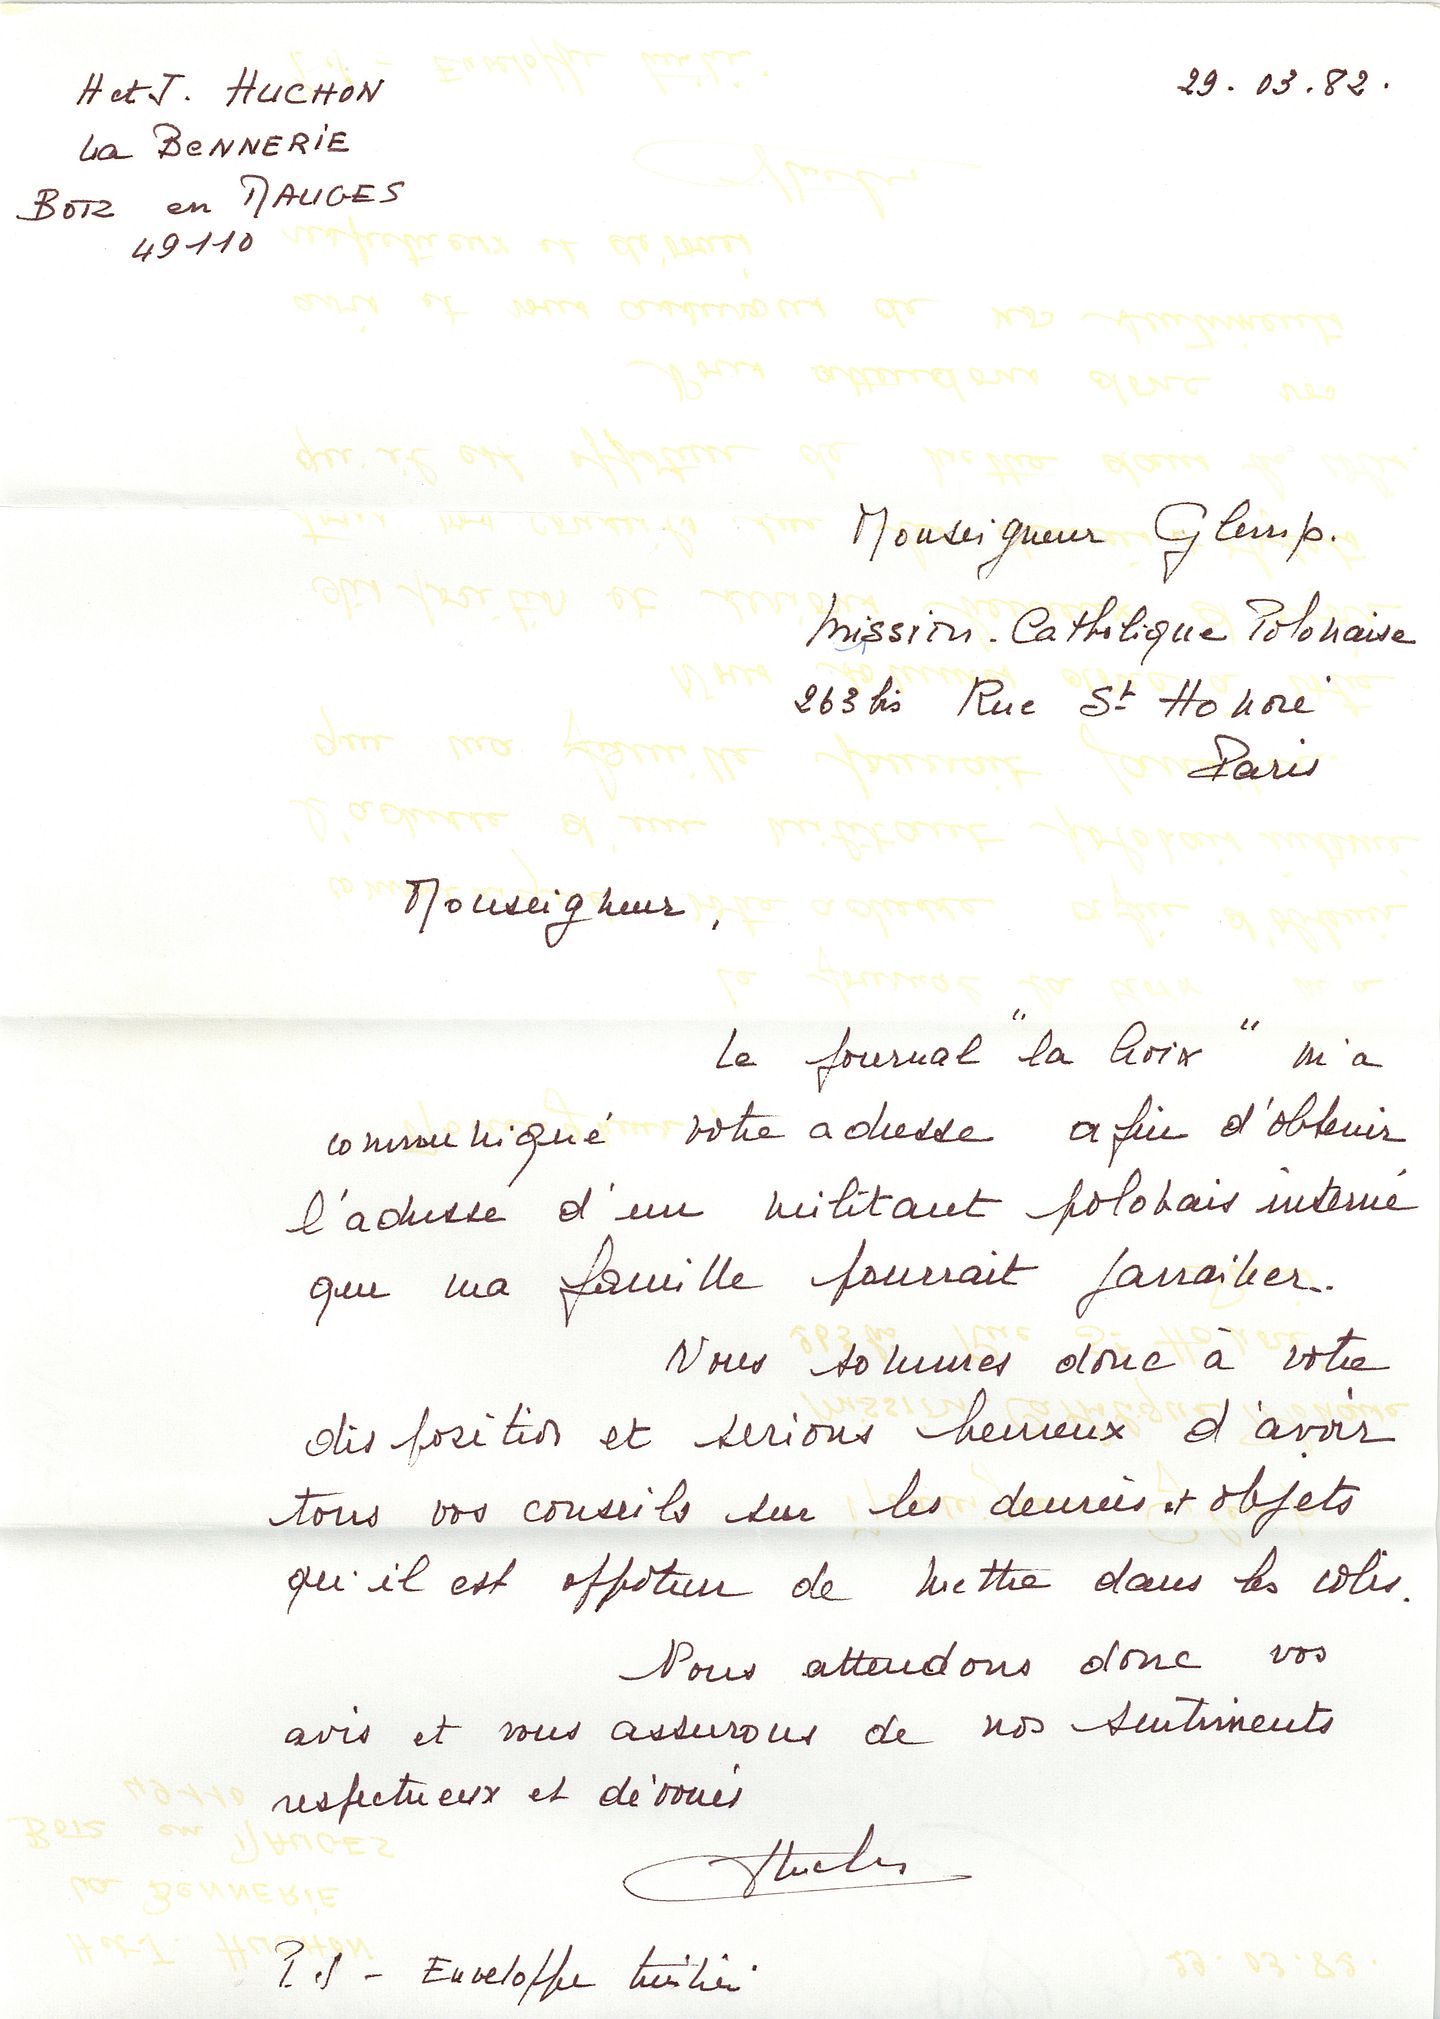 H et J. HUCHON
29.03.82.
La BENNERIE
BOTZ en MAUGES
49110
Monseigneur Glemp.
Mission. Catholique Polonaise
263 bis Rue St Honoré
Paris
Monseigneur,
Le journal "la Croix" m'a
communiqué votre adresse afin d'obtenir
l'adresse d'un militant polonais interné
que ma famille pourrait parrainer.
Nous sommes donc à votre
disposition et serions heureux d'avoir
tous vos conseils sur les denrées et objets
qu'il est opportun de mettre dans les colis.
Nous attendons donc vos
avis et vous assurons de nos sentiments
respectueux et dévoués
Huchon
P.S - Enveloppe